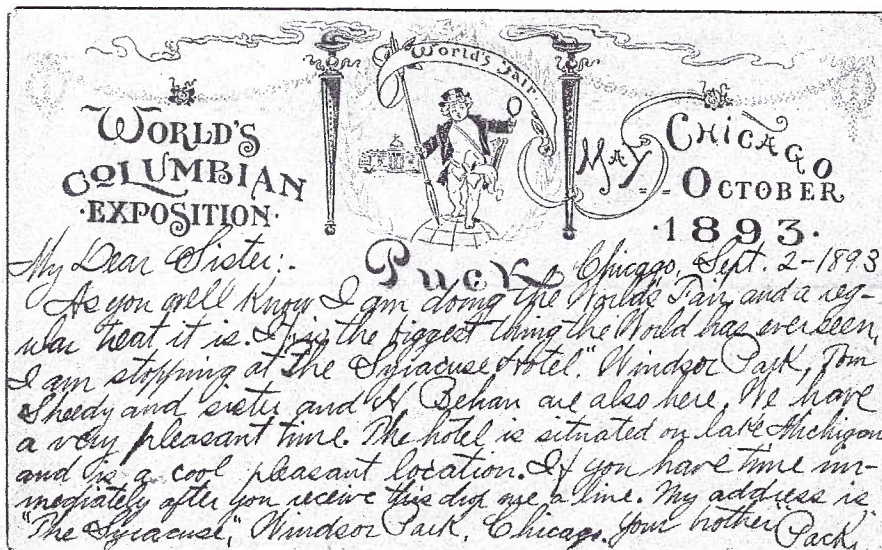 World's Fair.
WORLD'S
COLUMBIAN
·EXPOSITION·
MAY
CHICAGO
= OCTOBER
·1893·
PUCK
My Dear Sister:. Chicago, Sept. 2-1893
As you well know I am doing the World's Fair and a reg-
ular treat it is. It is the biggest thing the World has ever seen,
I am stopping at "The Syracuse Hotel", Windsor Park, Tom
Sheedy and sister and N Behan are also here. We have
a very pleasant time. The hotel is situated on lake Michigan
and is a cool pleasant location. If you have time im-
mediately after you receive this drop me a line. My address is
"The Syracuse", Windsor Park, Chicago. Your brother "Pack"